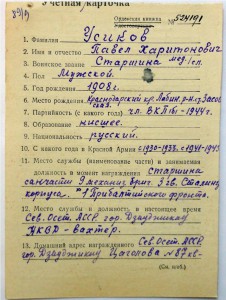 Учетная карточка
8319
Орденская книжка
Удостоверение № 524191
1. Фамилия Усиков
2. Имя и отчество Павел Харитонович
3. Воинское звание Старшина мед/сл.
4. Пол Мужской.
5. Год рождения 1908г.
6. Место рождения Краснодарский кр. Лабин. р-н
7. Партийность (с какого года) чл. ВКП(б)-1944г.
8. Образование низшее.
9. Национальность русский.
10. С какого года в Красной Армии с 1930-1933. с 1941-1945
11. Место службы (наименование части) и занимаемая
должность в момент награждения Старшина
санчасти 9 механиз. бриг. 3 гв. Сталин.
корпуса. 1 Прибалтийского фронта.
12. Место службы и должность в настоящее время
Сев. Осет. АССР, гор. Дзауджикау
НКВД - вахтер.
13. Домашний адрес награжденного Сев. Осет. АССР,
гор. Дзауджикау Цаголова №
(См. на об.)